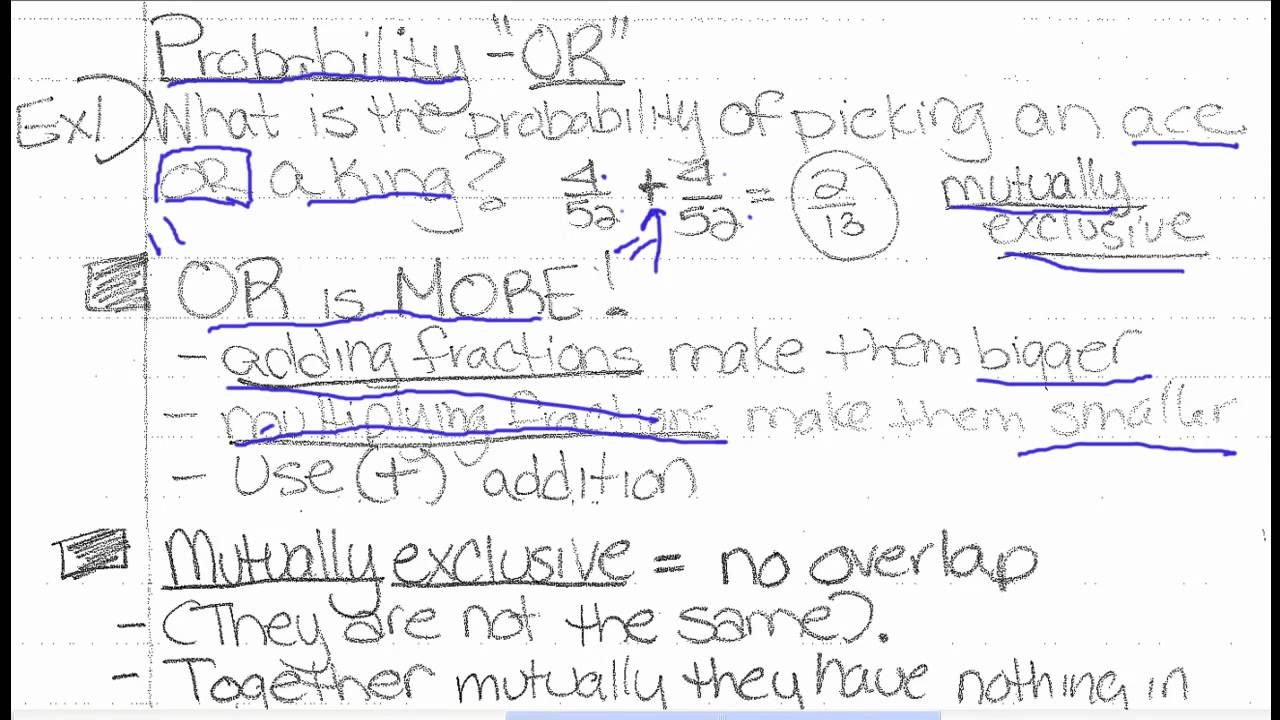 Probability - "OR"
Ex1) What is the probability of picking an ace
OR a king? 4/52 + 4/52 = 2/13 mutually
exclusive
OR is MORE!
- adding fractions make them bigger
- multiplying fractions make them smaller
- Use (+) addition
Mutually exclusive = no overlap
- (They are not the same).
- Together mutually they have nothing in